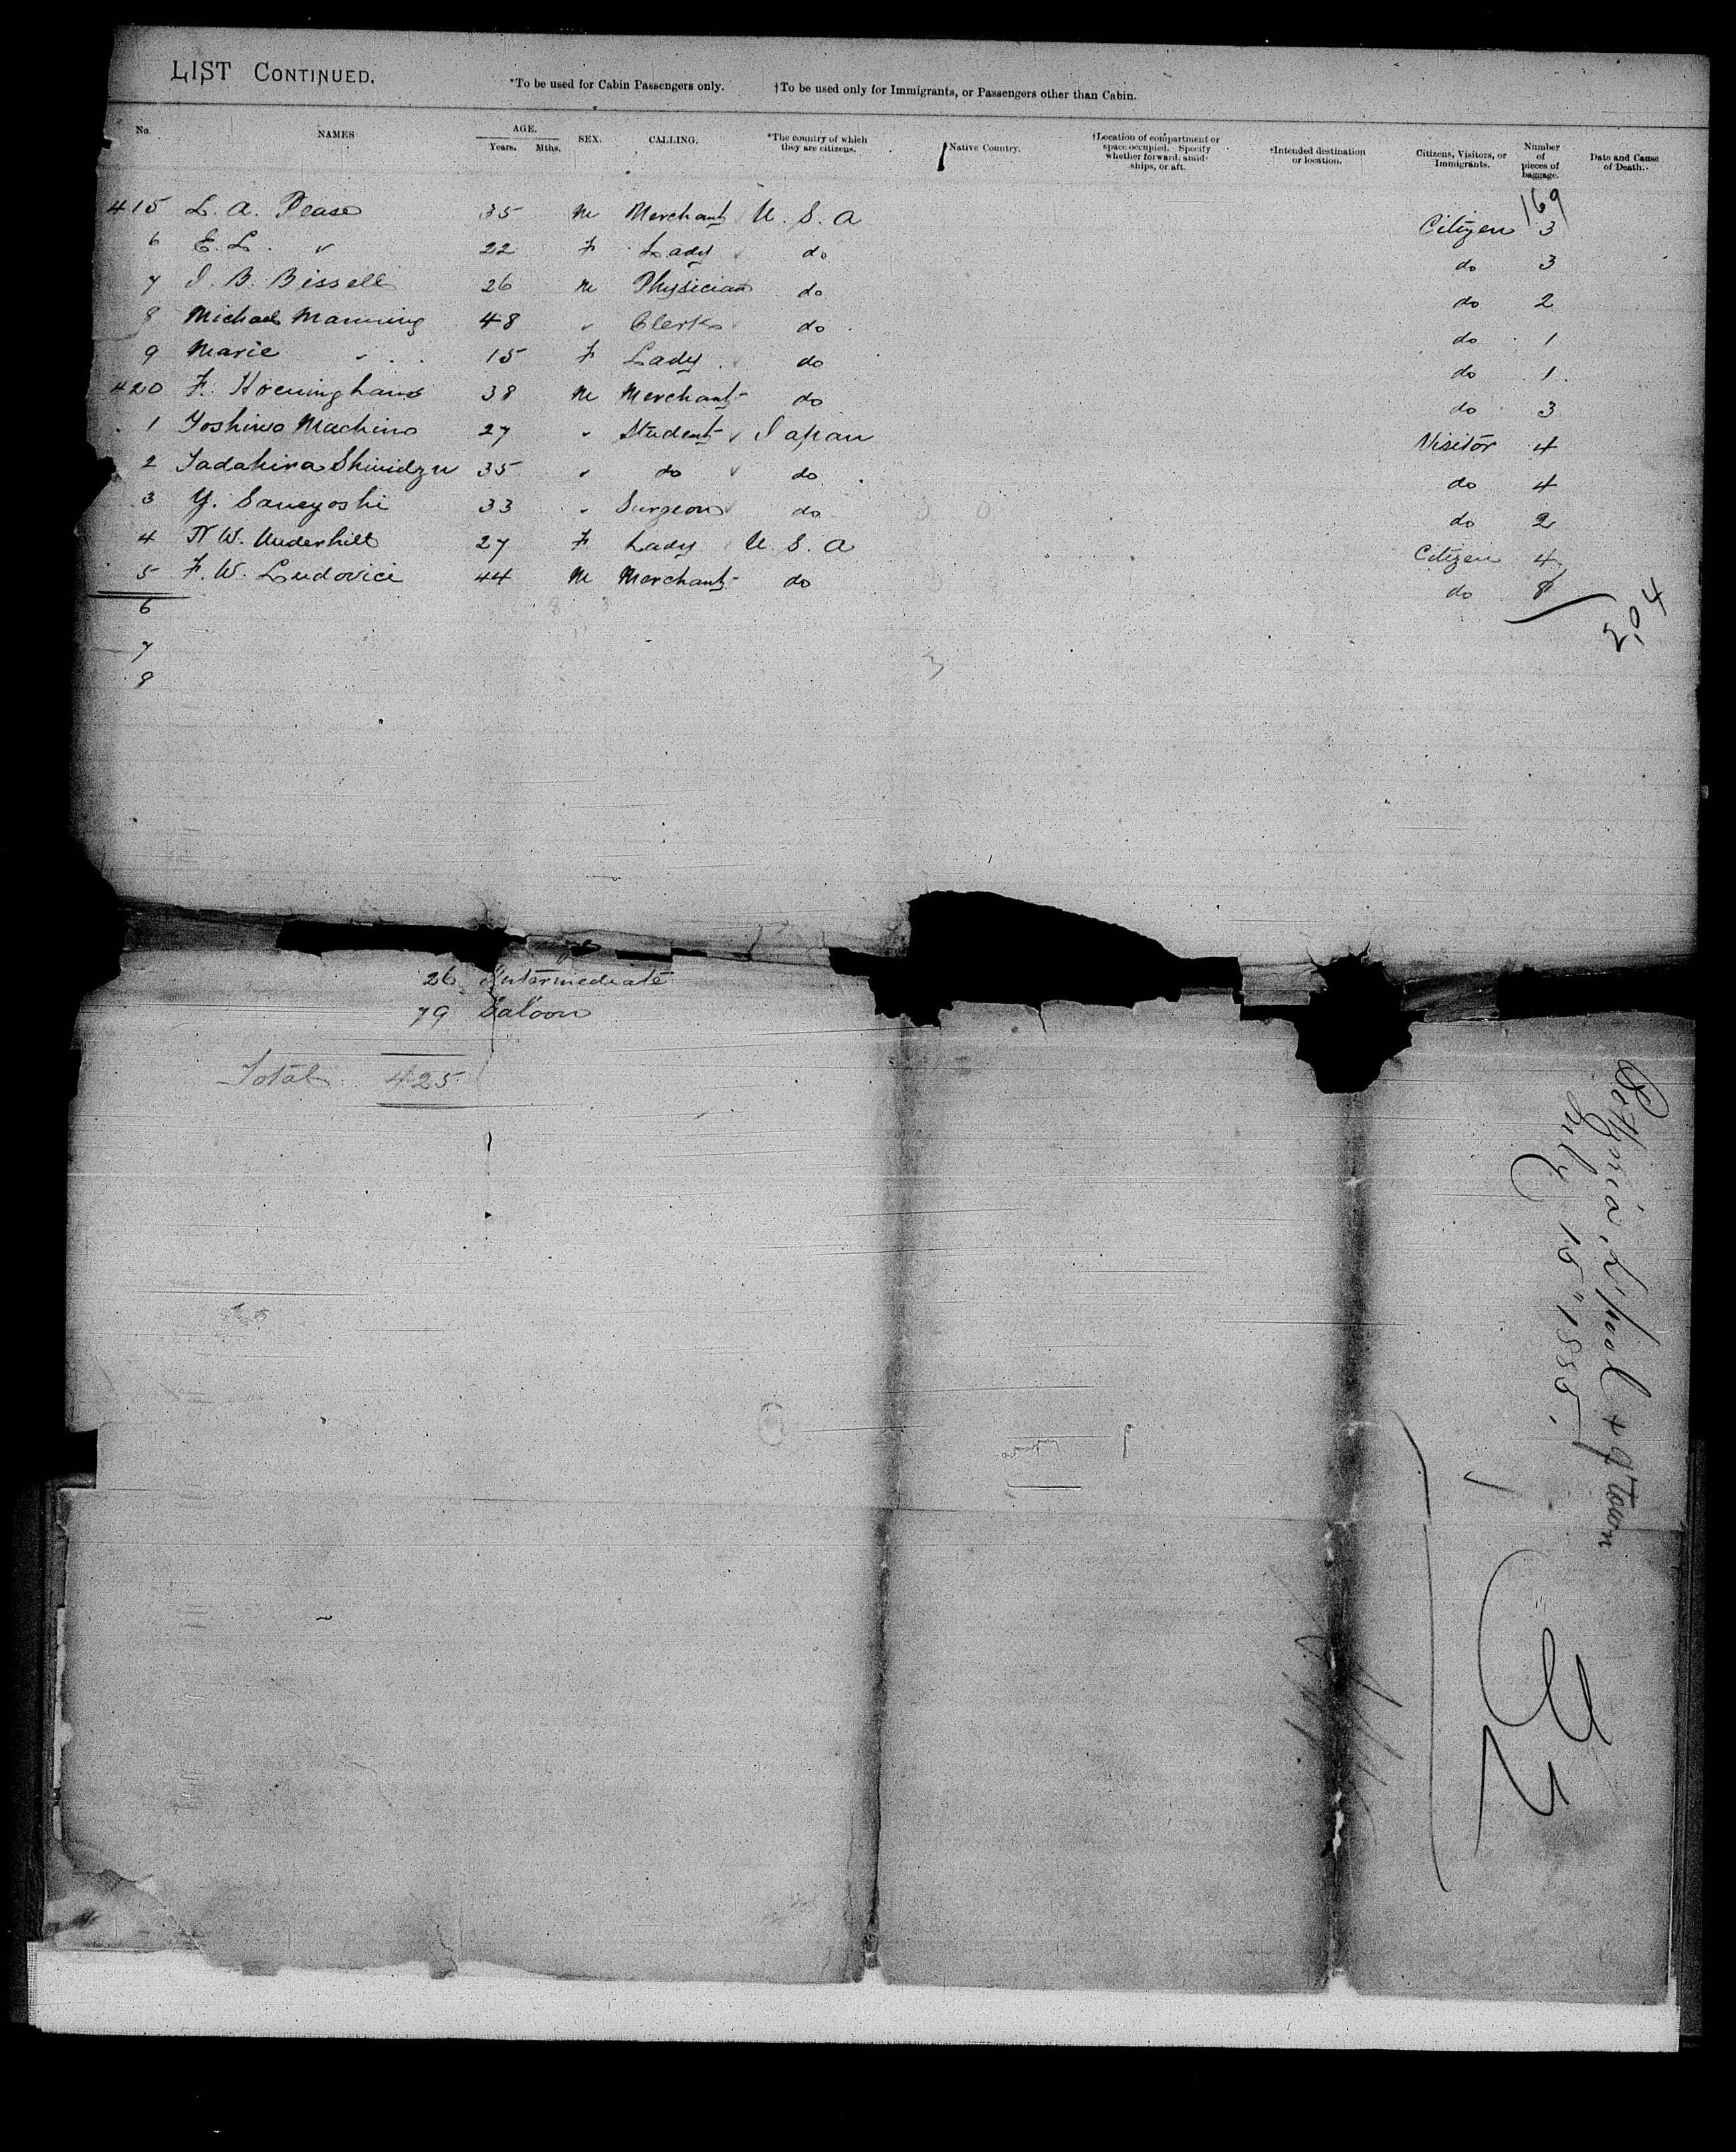 LIST CONTINUED.
*To be used for Cabin Passengers only. †To be used only for Immigrants, or Passengers other than Cabin.
No. NAMES AGE. Years. Mths. SEX. CALLING. *The country of which they are citizens. †Native Country. †Location of compartment or space occupied. Specify whether forward, amidships, or aft. †Intended destination or location. Citizens, Visitors, or Immigrants. Number of pieces of baggage. Date and Cause of Death.
169
415 L. A. Pease 35 M Merchant U. S. A Citizen 3
6 E. L. " 22 F Lady do do 3
7 J. B. Bissell 26 M Physician do do 2
8 Michael Manning 48 " Clerk do do 1
9 Marie " 15 F Lady do do 1
420 F. Hoeninghaus 38 M Merchant do do 3
1 Yoshiwo Machino 27 " Student Japan Visitor 4
2 Tadahira Shimidzu 35 " do do do 4
3 Y. Saneyoshi 33 " Surgeon do do 2
4 N W. Underhill 27 F Lady U. S. A Citizen 4
5 F. W. Ludovici 44 M Merchant do do 8
6
204
7
8
26 Intermediate
79 Saloon
Total 425
Bothnia, L'pool & Q'Town
July 15" 1885.